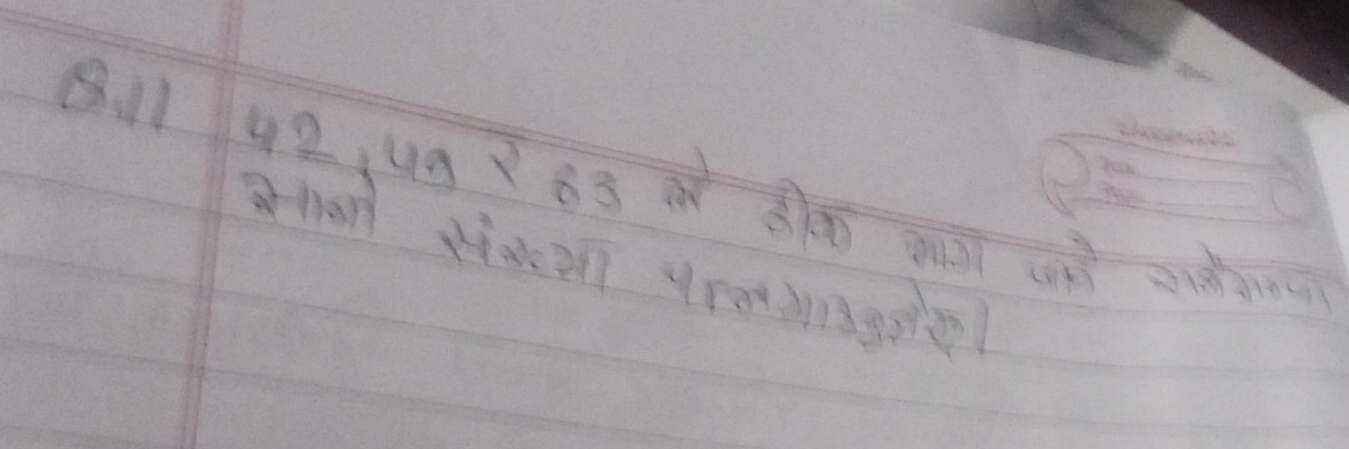 Q.11 42, 49 र 63 ले ठीक भाग जाने सबैभन्दा
सानो संख्या पत्ता लगाउनुहोस्।